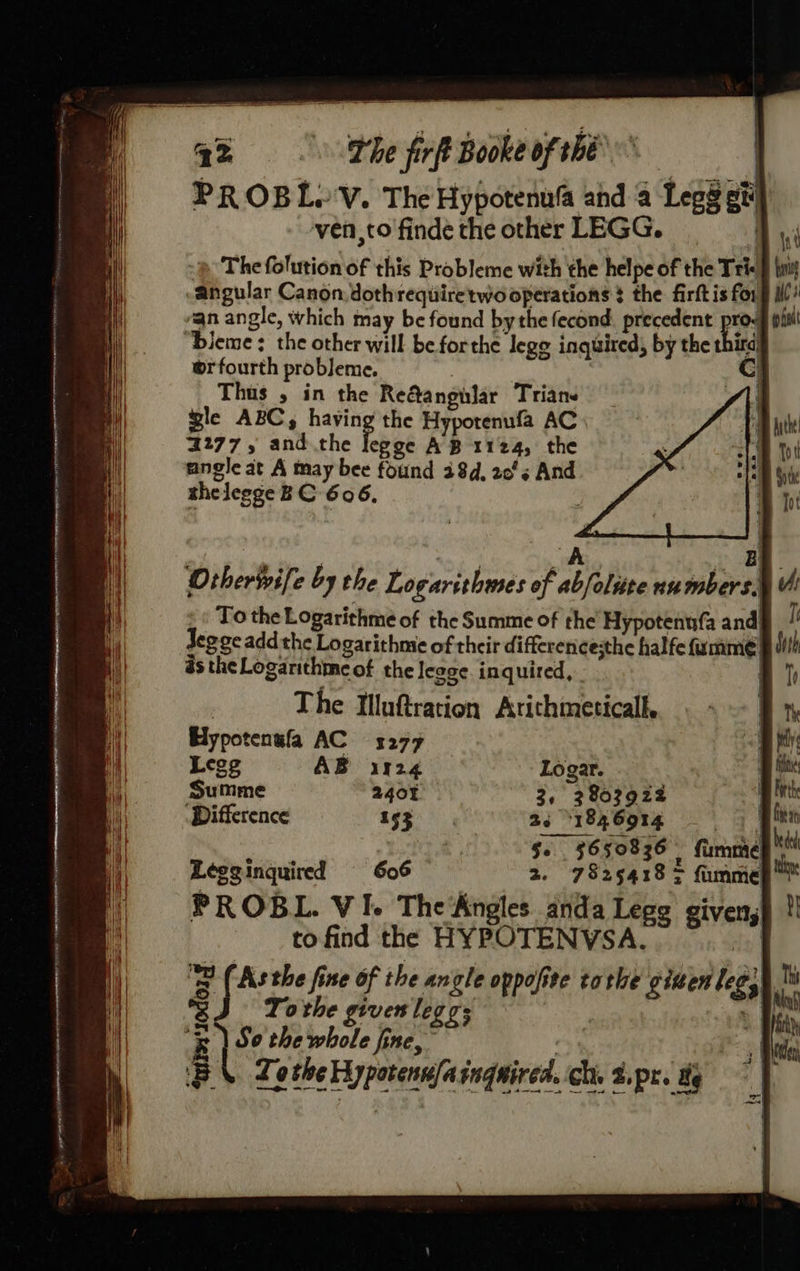 92 The first Booke of the
PROBL. V. The Hypotenusa and a Legg gi-
ven, to finde the other LEGG.
The solution of this Probleme with the helpe of the Tri-
angular Canon, doth require two operations: the first is for
an angle, which may be found by the second precedent pro-
bleme: the other will be for the legg inquired, by the third
or fourth probleme.
Thus, in the Rectangular Trian-
gle ABC, having the Hypotenusa AC
1277, and the legge AB 1124, the
angle at A may bee found 28d. 20'; And
the legge BC 606.
C
A B
Otherwise by the Logarithmes of absolute numbers.
To the Logarithme of the Summe of the Hypotenusa and
legge add the Logarithme of their difference; the halfe summe
is the Logarithme of the legge inquired.
The Illustration Arithmeticall.
Hypotenusa AC 1277
Legg AB 1124 Logar.
Summe 2401 3. 3803922
Difference 153 2. 1846914
5. 5650836 summe
Legg inquired 606 2. 7825418 ½ summe
PROBL. VI. The Angles and a Legg given,
to find the HYPOTENVSA.
As the sine of the angle opposite to the given leg;
To the given legg;
So the whole sine,
To the Hypotenusa inquired. ch. 2. pr.